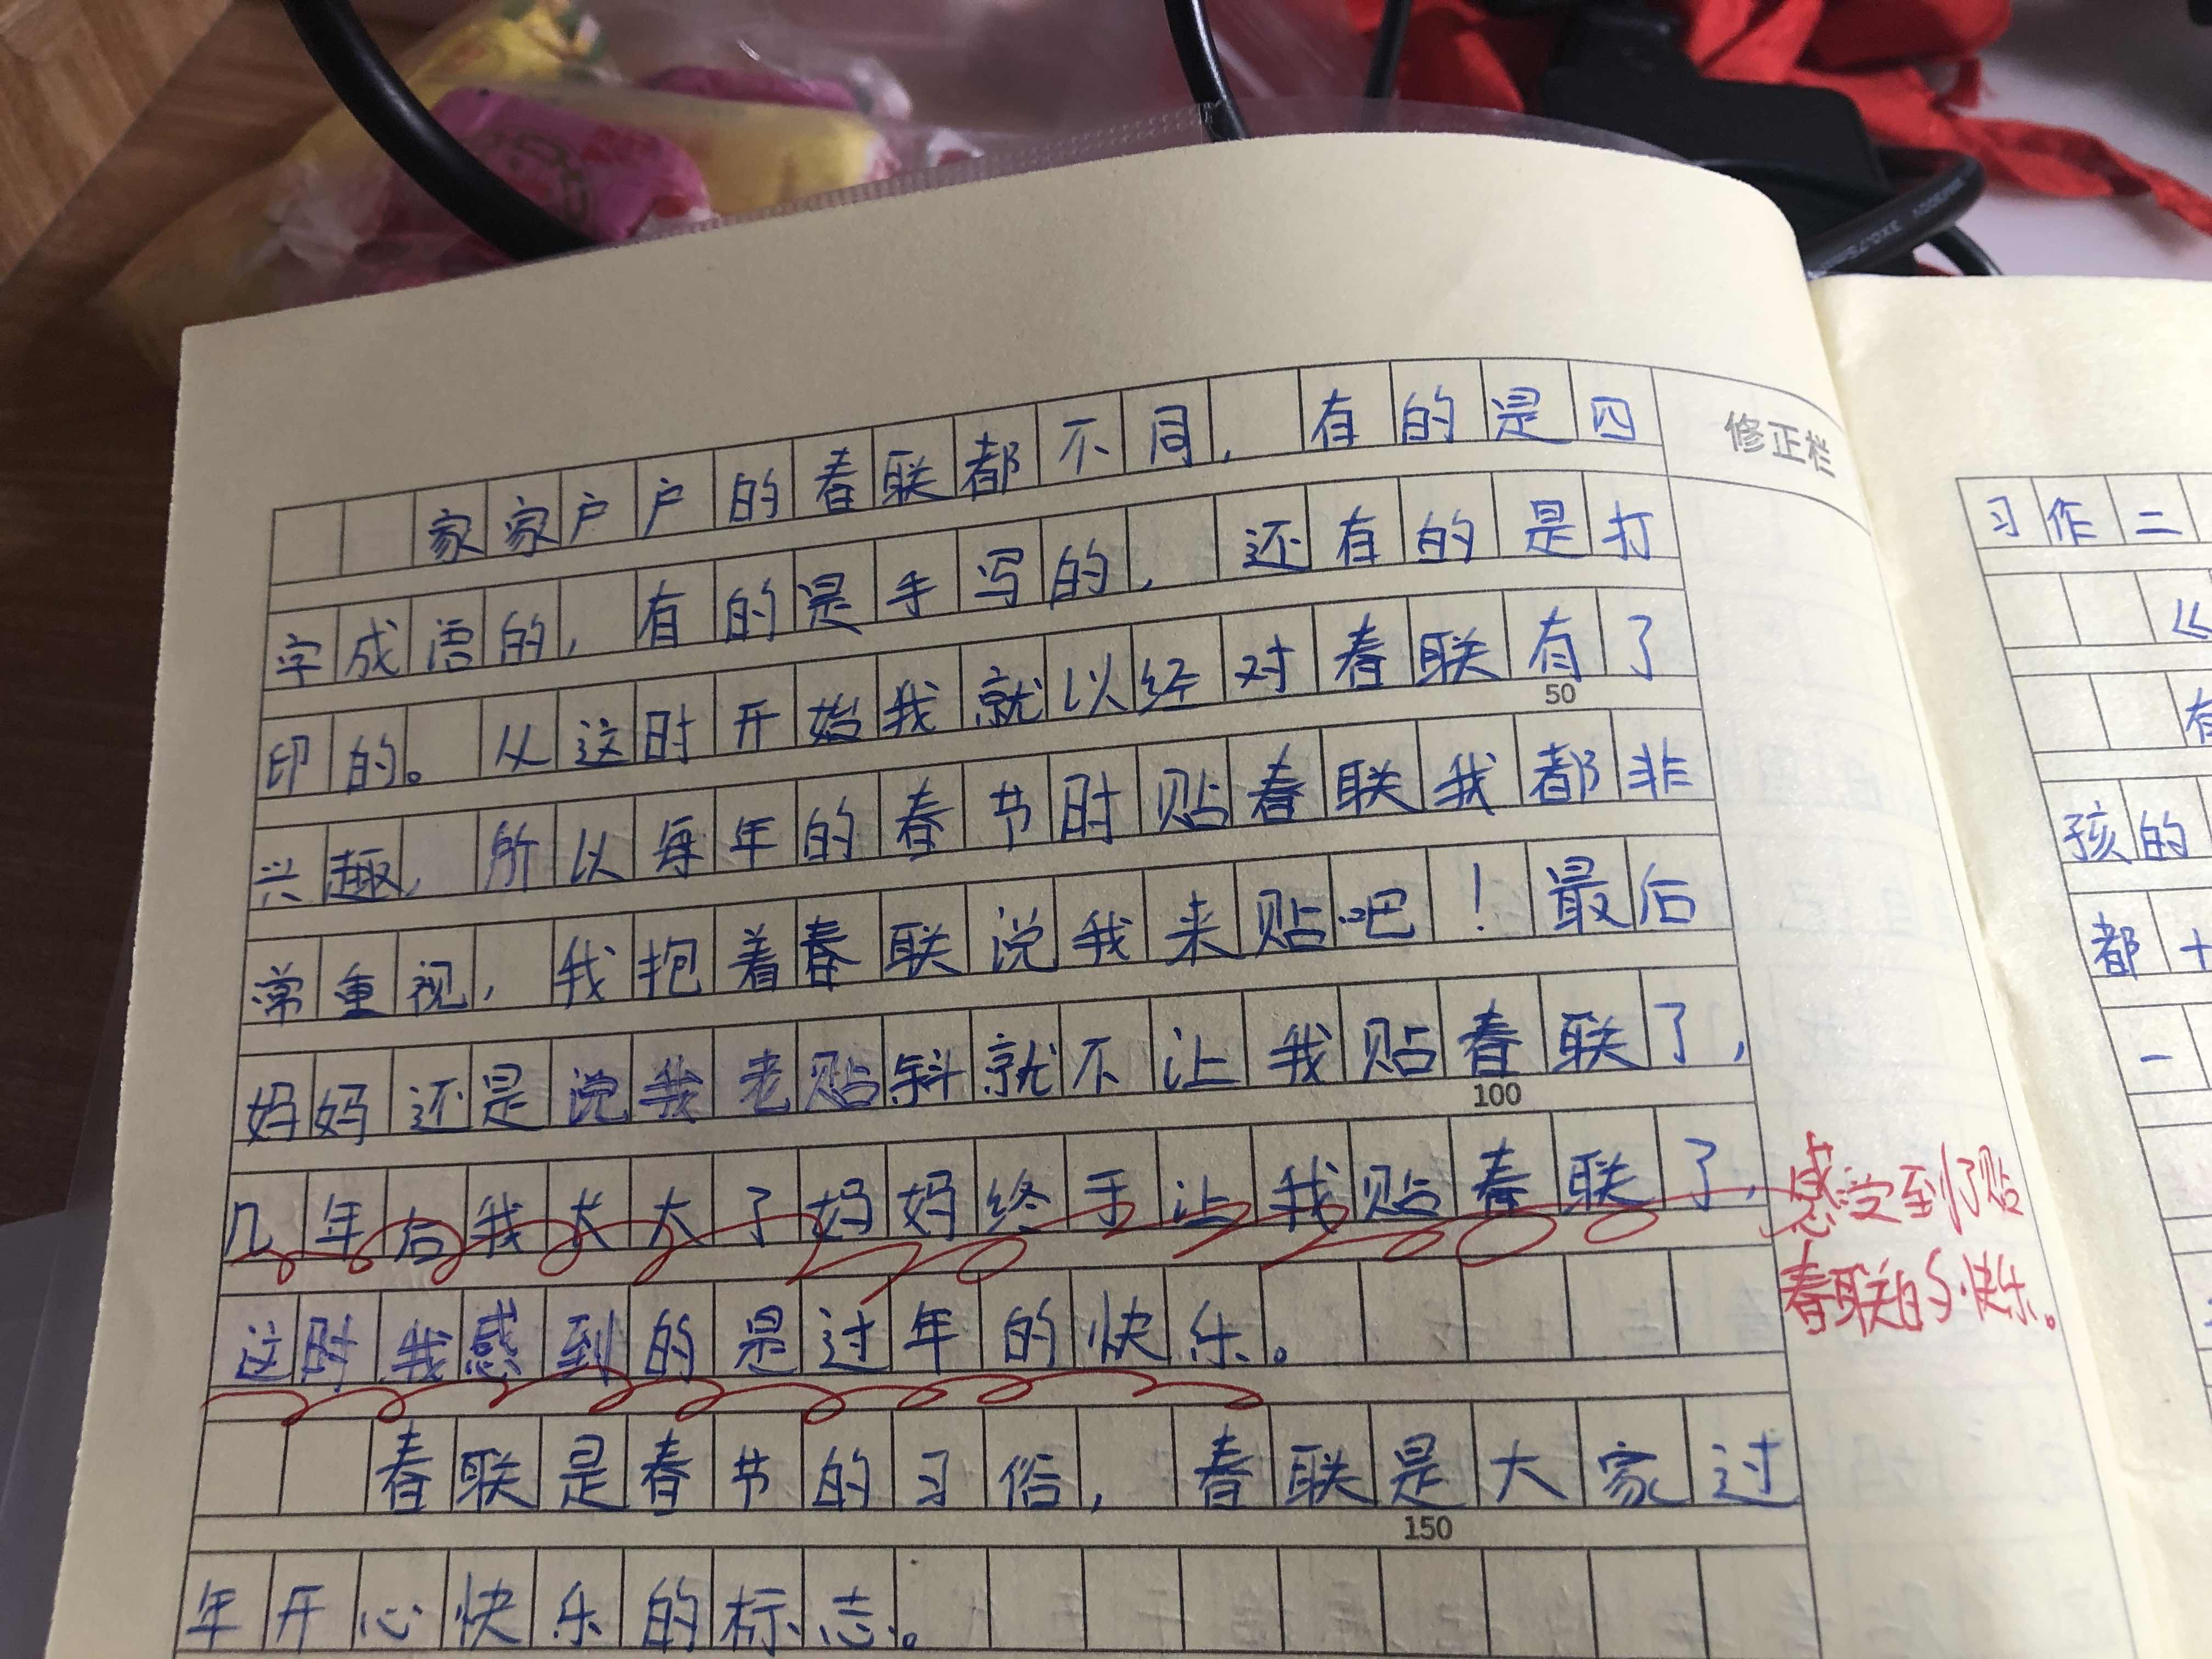 家家户户的春联都不同，有的是四
修正栏
字成语的，有的是手写的，还有的是打
印的。从这时开始我就以经对春联有了
50
兴趣，所以每年的春节时贴春联我都非
常重视，我抱着春联说我来贴吧！最后
妈妈还是说我老贴斜就不让我贴春联了，
100
几年后我大大了妈妈终于让我贴春联了，
感受到了贴
春联的快乐。
这时我感到的是过年的快乐。
春联是春节的习俗，春联是大家过
150
年开心快乐的标志。
习作二
《
孩的
都十
一